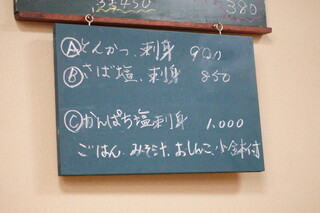 450 380
Ⓐとんかつ、刺身 900
Ⓑさば塩、刺身 850
Ⓒかんぱち塩刺身 1,000
ごはん、みそ汁、おしんこ、小鉢付